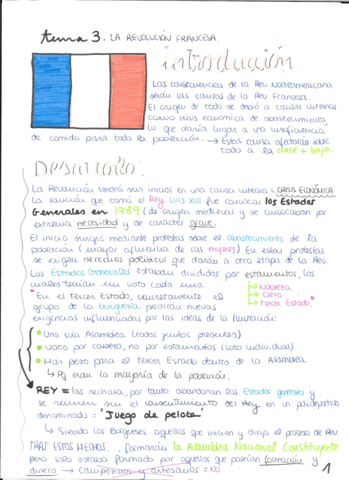 tema 3. LA REVOLUCIÓN FRANCESA.
introducción
Las consecuencias de la Rev Norteamericana
serán las causas de la Rev Francesa.
El origen de todo se debió a causas internas
como crisis económica de abastecimiento,
lo que daría lugar a una insuficiencia
de comida para toda la población. → Estas causas afectarían sobre
todo a la clase + baja.
Desarrollo.
La Revolución tendrá sus inicios en una causa interna = CRISIS ECONÓMICA
La sanción que tomó el Rey LUIS XVI fue convocar los Estados
Generales en 1789 (de origen medieval y se convocaban por
extrema necesidad y de carácter grave.
El inicio surgió mediante protestas sobre el abastecimiento de la
población (mayor afluencia de las mujeres) En estas protestas
se exigen derechos políticos que darán a otra etapa de la Rev.
Los Estados Generales estaban divididos por estamentos, los
cuales tenían un voto cada uno.
→ Nobleza
→ Clero
→ Tercer Estado
* En el Tercer Estado, concretamente el
grupo de la burguesía pedirán nuevas
exigencias influenciadas por las ideas de la Ilustración:
• Una sola Asamblea (todos juntos presentes)
• Voto por cabeza, no por estamentos (voto individual)
• Más peso para el tercer Estado dentro de la Asamblea
↳ Pq eran la mayoría de la población.
REY = las rechaza, por tanto abandonan los Estados generales y
se reúnen sin el consentimiento del Rey en un polideportivo
denominado = "Juego de pelota"
↳ Siendo los burgueses aquellos que inician y dirija el proceso de Rev.
TRAS ESTOS HECHOS... formarán la Asamblea Nacional Constituyente
pero solo estaba formada por aquellos que poseían formación y
dinero → campesinos y artesanos = NO
1